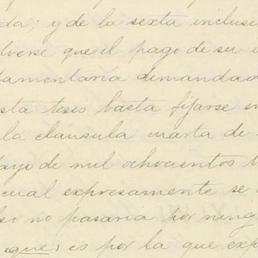 da; y de la sexta incluse
lverse que el pago de su
amentaria demandad
sta tesis basta fijarse en
la cláusula cuarta de
Mayo de mil ochocientos
cual expresamente se
no pasaria por ning
que, es por la que exp